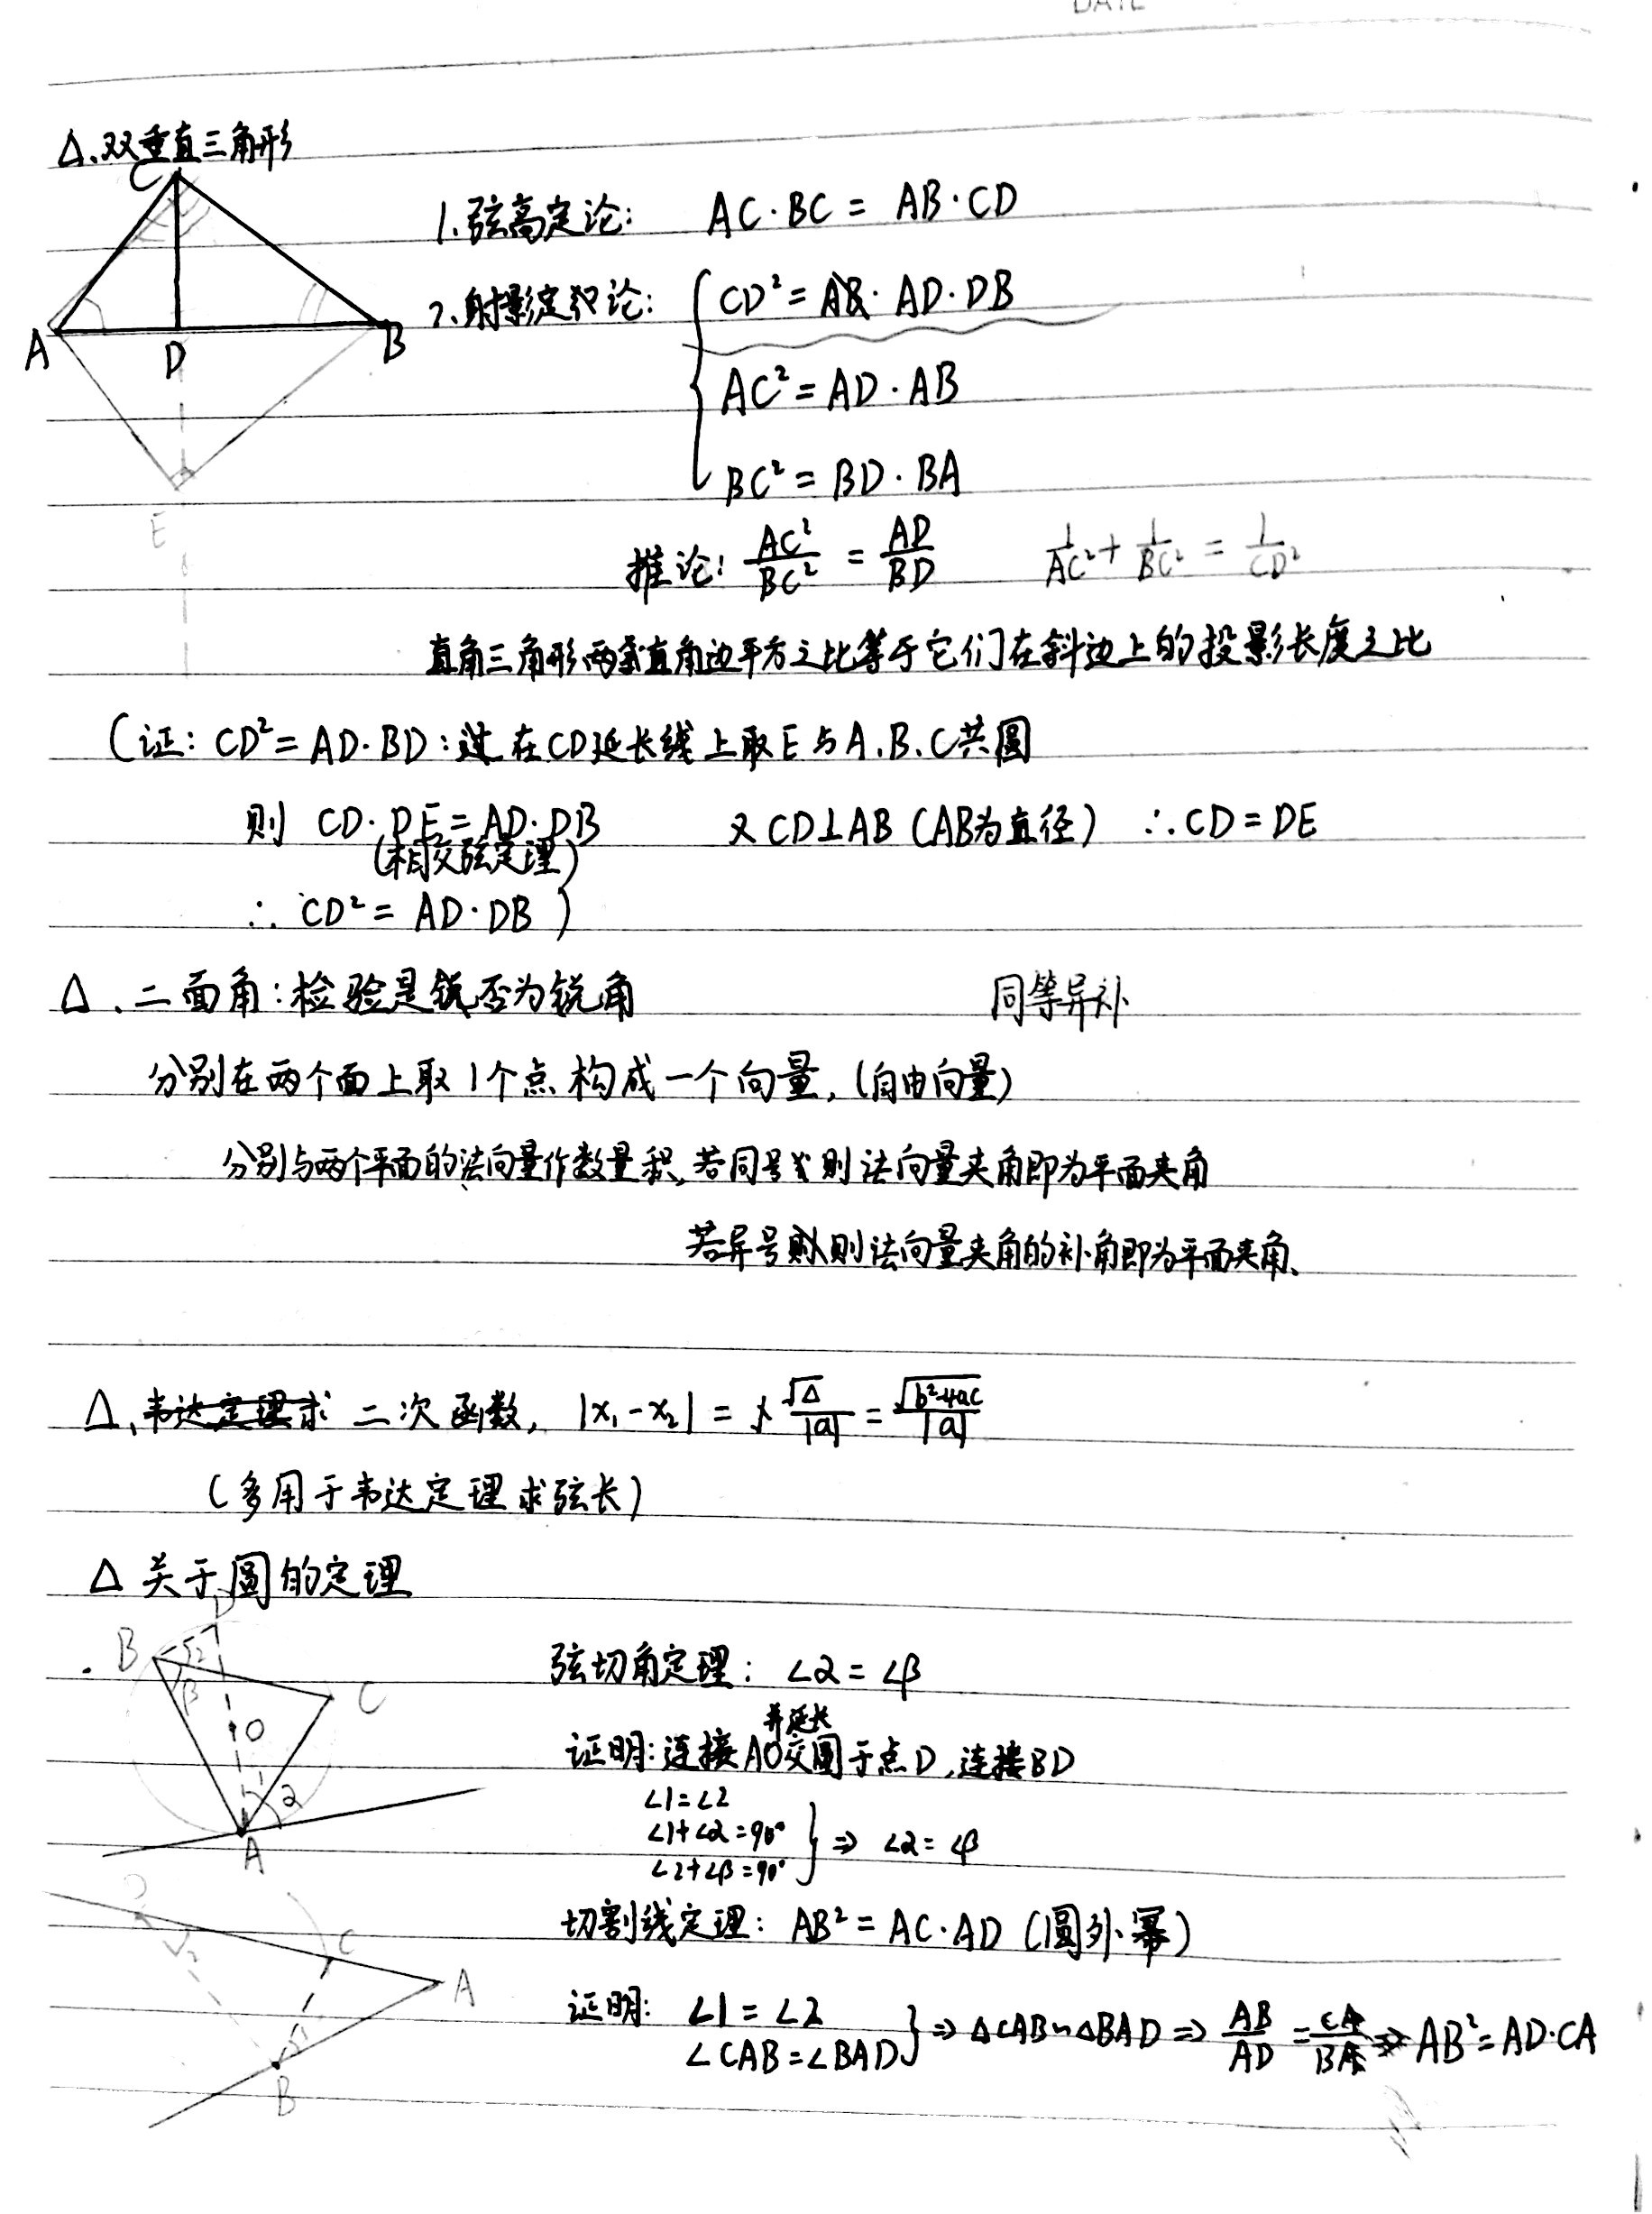 DATE
△.双垂直三角形
1.弦高定论: AC·BC = AB·CD
2.射影定论: CD² = AD·DB
AC² = AD·AB
BC² = BD·BA
推论: AC²/BC² = AD/BD 1/AC² + 1/BC² = 1/CD²
直角三角形两直角边平方之比等于它们在斜边上的投影长度之比
(证: CD² = AD·BD: 在CD延长线上取E与A.B.C共圆
则 CD·DE = AD·DB 又CD⊥AB (AB为直径) ∴CD = DE
(相交弦定理)
∴ CD² = AD·DB )
△.二面角:检验是否为锐角 同等异补
分别在两个面上取1个点构成一个向量,(自由向量)
分别与两个平面的法向量作数量积,若同号则法向量夹角即为平面夹角
若异号则法向量夹角的补角即为平面夹角.
△.韦达定理求 二次函数, |x₁-x₂| = √△/|a| = √b²-4ac/|a|
(多用于韦达定理求弦长)
△ 关于圆的定理
弦切角定理: ∠α = ∠β
并延长
证明:连接AO交圆于点D,连接BD
∠1=∠2
∠1+∠α=90° ⇒ ∠α=∠β
∠2+∠β=90°
切割线定理: AB² = AC·AD (圆外幂)
证明: ∠1 = ∠2
∠CAB=∠BAD ⇒ △CAB∽△BAD ⇒ AB/AD = CA/BA ⇒ AB²=AD·CA
C
A
D
B
E
D
B
C
O
β
2
1
α
A
D
2
C
A
1
B